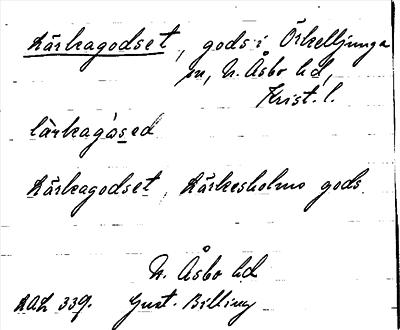 Lärkagodset, gods i Örkelljunga
sn, N. Åsbo hd,
Krist. l.
lärkagåsed
Lärkagodset, Lärkesholms gods.
N. Åsbo hd
Gust. Billing